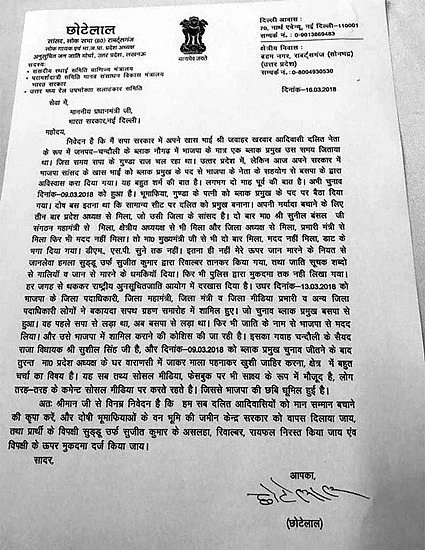 छोटेलाल
सांसद, लोक सभा (80) राबर्ट्सगंज
लोक गायक एवं भा.ज.पा. प्रदेश अध्यक्ष
अनुसूचित जन जाति मोर्चा, उत्तर प्रदेश, लखनऊ
सदस्यः
- संसदीय स्थाई समिति वाणिज्य मंत्रालय
- परामर्शदात्री समिति मानव संसाधन विकास मंत्रालय
भारत सरकार
- उत्तर मध्य रेल उपभोक्ता सलाहकार समिति
सत्यमेव जयते
दिल्ली आवास :
70, नार्थ एवेन्यू, नई दिल्ली-110001
सम्पर्क नं. : 0-9013869483
क्षेत्रीय निवास :
बढ़म नगर, राबर्ट्सगंज (सोनभद्र)
(उत्तर प्रदेश)
सम्पर्क नं. : 0-8004930530
दिनांक-16.03.2018
सेवा में,
माननीय प्रधानमंत्री जी,
भारत सरकार, नई दिल्ली।
महोदय,
निवेदन है कि मैं सपा सरकार में अपने खास भाई श्री जवाहर खरवार आदिवासी दलित नेता
के रूप में जनपद-चन्दौली के ब्लाक नौगढ़ में भाजपा के मात्र एक ब्लाक प्रमुख उस समय जिताया
था। जिस समय सपा के गुण्डा राज चल रहा था। उत्तर प्रदेश में, लेकिन आज अपने सरकार में
भाजपा सांसद के खास भाई को ब्लाक प्रमुख के पद से भाजपा के नेता के सहयोग से बसपा के द्वारा
अविस्वास करा दिया गया। यह बहुत शर्म की बात है। लगभग दो माह पूर्व की बात है। अभी चुनाव
दिनांक-09.03.2018 को हुआ है। भूमाफिया, गुण्डा के पत्नी को ब्लाक प्रमुख के पद पर बैठा दिया
गया। दोष बस इतना था कि सामान्य सीट पर दलित को प्रमुख बनाना। अपनी मर्यादा बचाने के लिए
तीन बार प्रदेश अध्यक्ष से मिला, जो उसी जिला के सांसद है। दो बार मा० श्री सुनील बंसल जी
संगठन महामंत्री से मिला, क्षेत्रीय अध्यक्ष से भी मिला और जिला अध्यक्ष से मिला, प्रभारी मंत्री से
मिला फिर भी मदद नहीं मिला। तो मा० मुख्यमंत्री जी से भी दो बार मिला, मदद नहीं मिला, डाट के
भगा दिया गया। डीएम., एस.पी. सुने तक नहीं। इतना ही नहीं मेरे ऊपर जान मारने के नियत से
जानलेवा हमला सुड्डू उर्फ सुजीत कुमार द्वारा रिवाल्बर तानकर किया गया, तथा जाति सूचक शब्दो
से गालियॉ व जान से मारने के धमकियॉ दिया। फिर भी पुलिस द्वारा मुकदमा तक नही लिखा गया।
हर जगह से थककर राष्ट्रीय अनुसूचितजाति आयोग में दरखास दिया है। उधर दिनांक-13.03.2018 को
भाजपा के जिला पदाधिकारी, जिला महामंत्री, जिला मंत्री व जिला मीडिया प्रभारी व अन्य जिला
पदाधिकारी लोगों ने बकायदा सपथ ग्रहण समारोह में शामिल हुए। जो चुनाव ब्लाक प्रमुख बसपा से
हुआ। वह पहले सपा से लड़ा था, अब बसपा से लड़ा था। फिर भी जाति के नाम से भाजपा से मदद
लिया। और उसे भाजपा में शामिल कराने की कोशिश की जा रही है। इसका गवाह चन्दौली के सैयद
राजा विधायक श्री सुशील सिंह जी है, और दिनांक-09.03.2018 को ब्लाक प्रमुख चुनाव जीतने के बाद
तुरन्त मा0 प्रदेश अध्यक्ष के घर वाराणसी में जाकर माला पहनाकर खुशी जाहिर करना, क्षेत्र में बहुत
चर्चा का विषय है। यह सब तथ्य सोसल मिडिया, फेसबुक पर भी साक्ष्य के रूप में मौजूद है, लोग
तरह-तरह के कमेन्ट सोसल मिडिया पर करते रहते है। जिससे भाजपा की छबि धूमिल हुई है।
अतः श्रीमान जी से विनम्र निवेदन है कि हम सब दलित आदिवासीयों को मान सम्मान बचाने
की कृपा करें, और दोषी भूमाफियाओं के वन भूमि की जमीन केन्द्र सरकार को वापस दिलाया जाय,
तथा प्रार्थी के विपक्षी सुड्डू उर्फ सुजीत कुमार के असलहा, रिवाल्बर, रायफल निरस्त किया जाय एंव
विपक्षी के ऊपर मुकदमा दर्ज किया जाय।
सादर,
आपका,
छोटेलाल
(छोटेलाल)